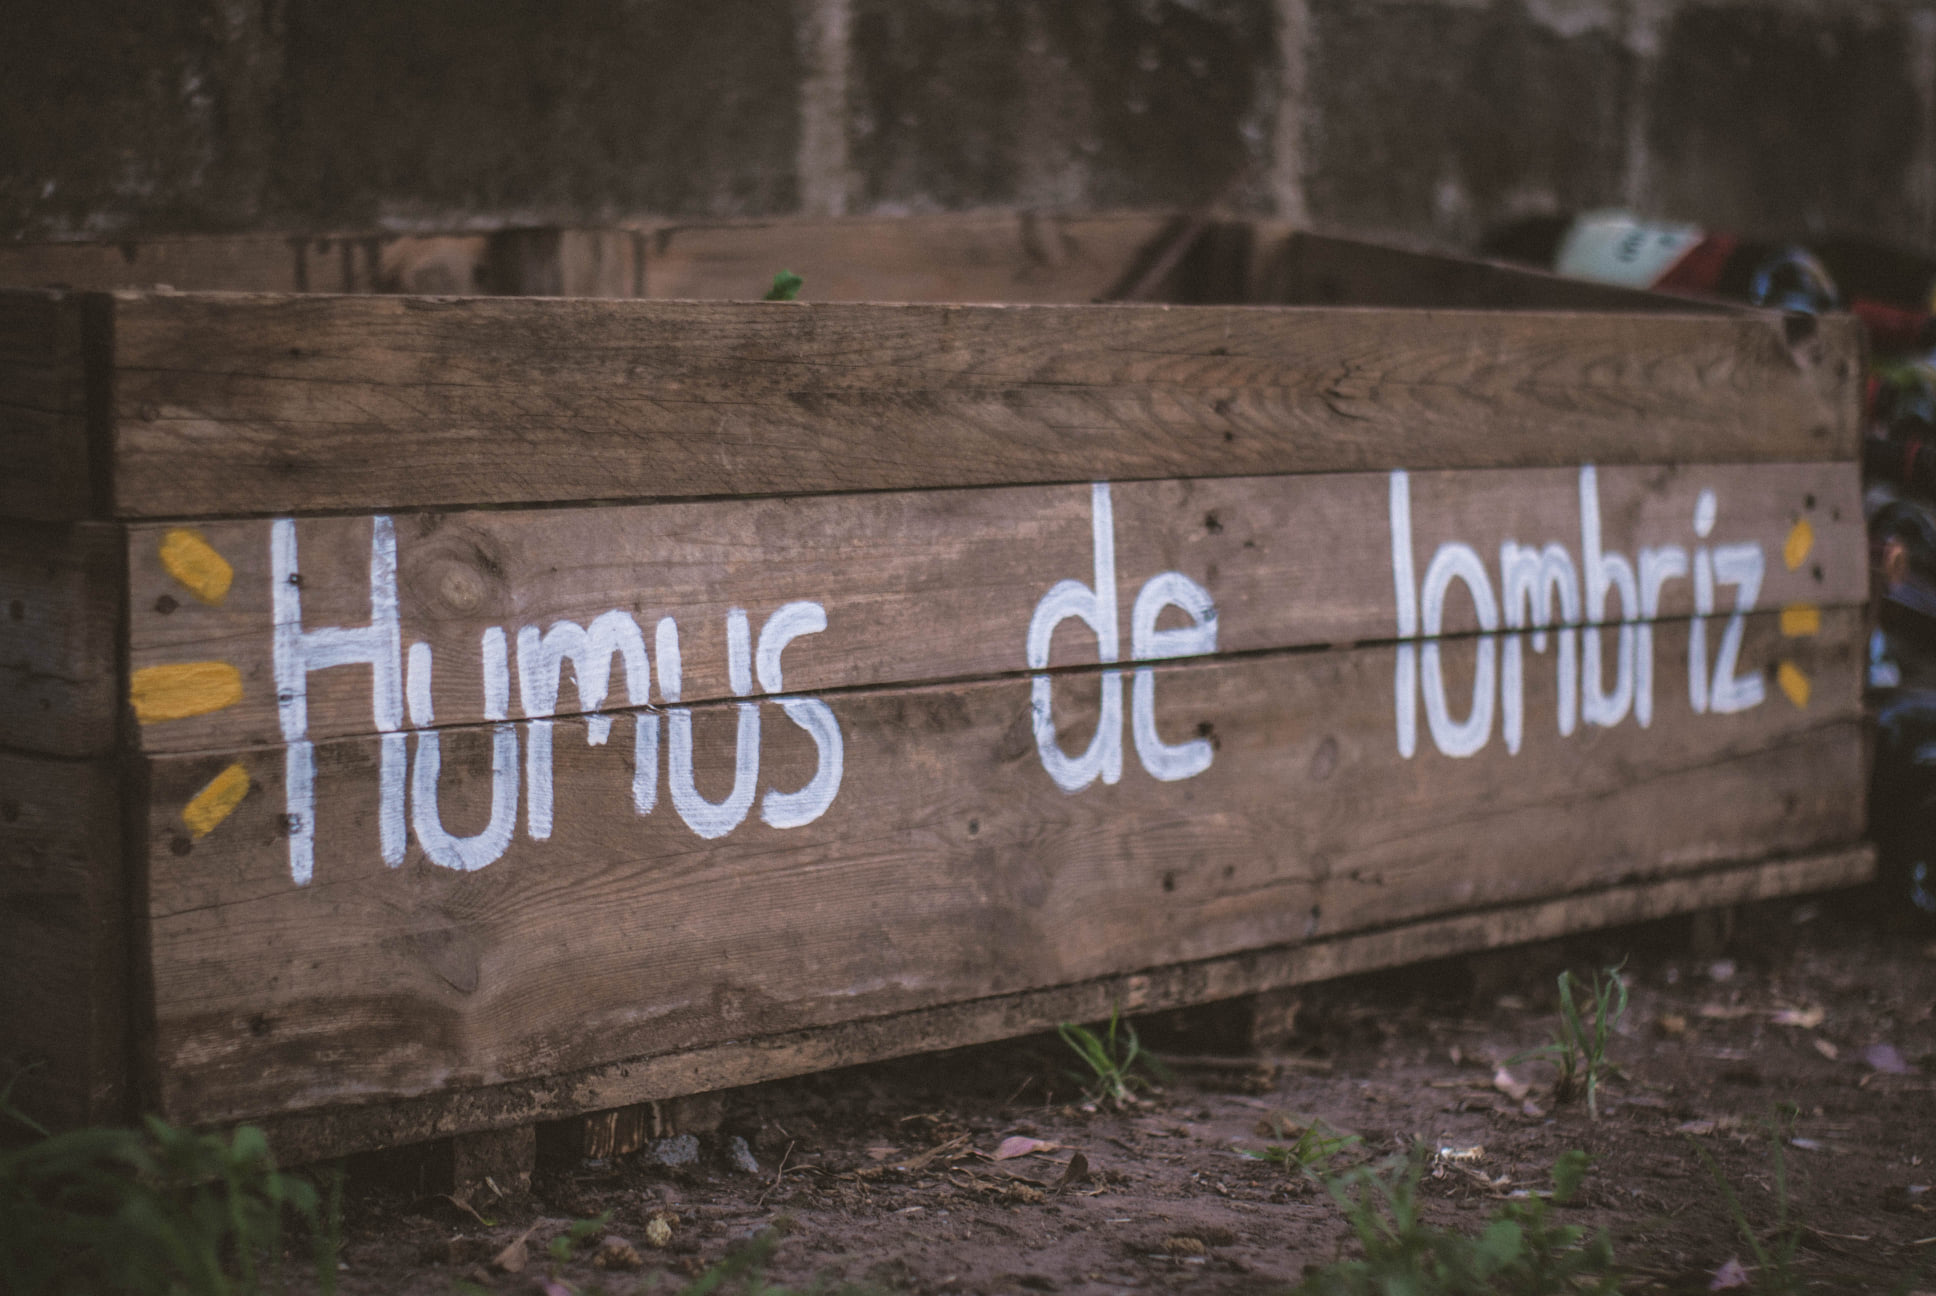 Humus de lombriz